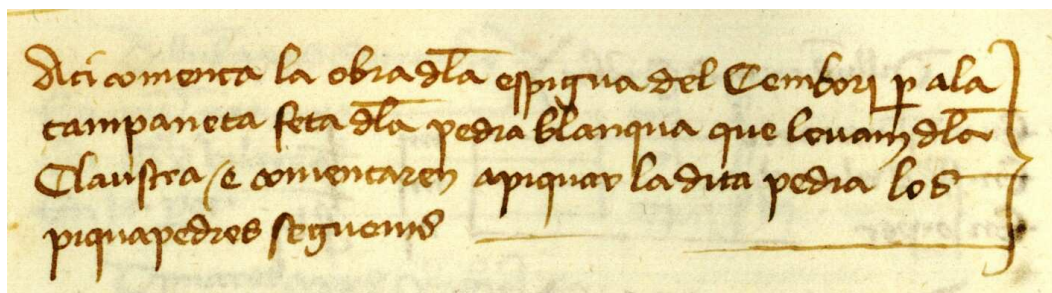 Aci comença la obra dla espigua del Cembori p ala
campaneta feta dla pedra blanqua que levam dla
Claustra / e comencaren apiquar la dita pedra los
piquapedres seguents